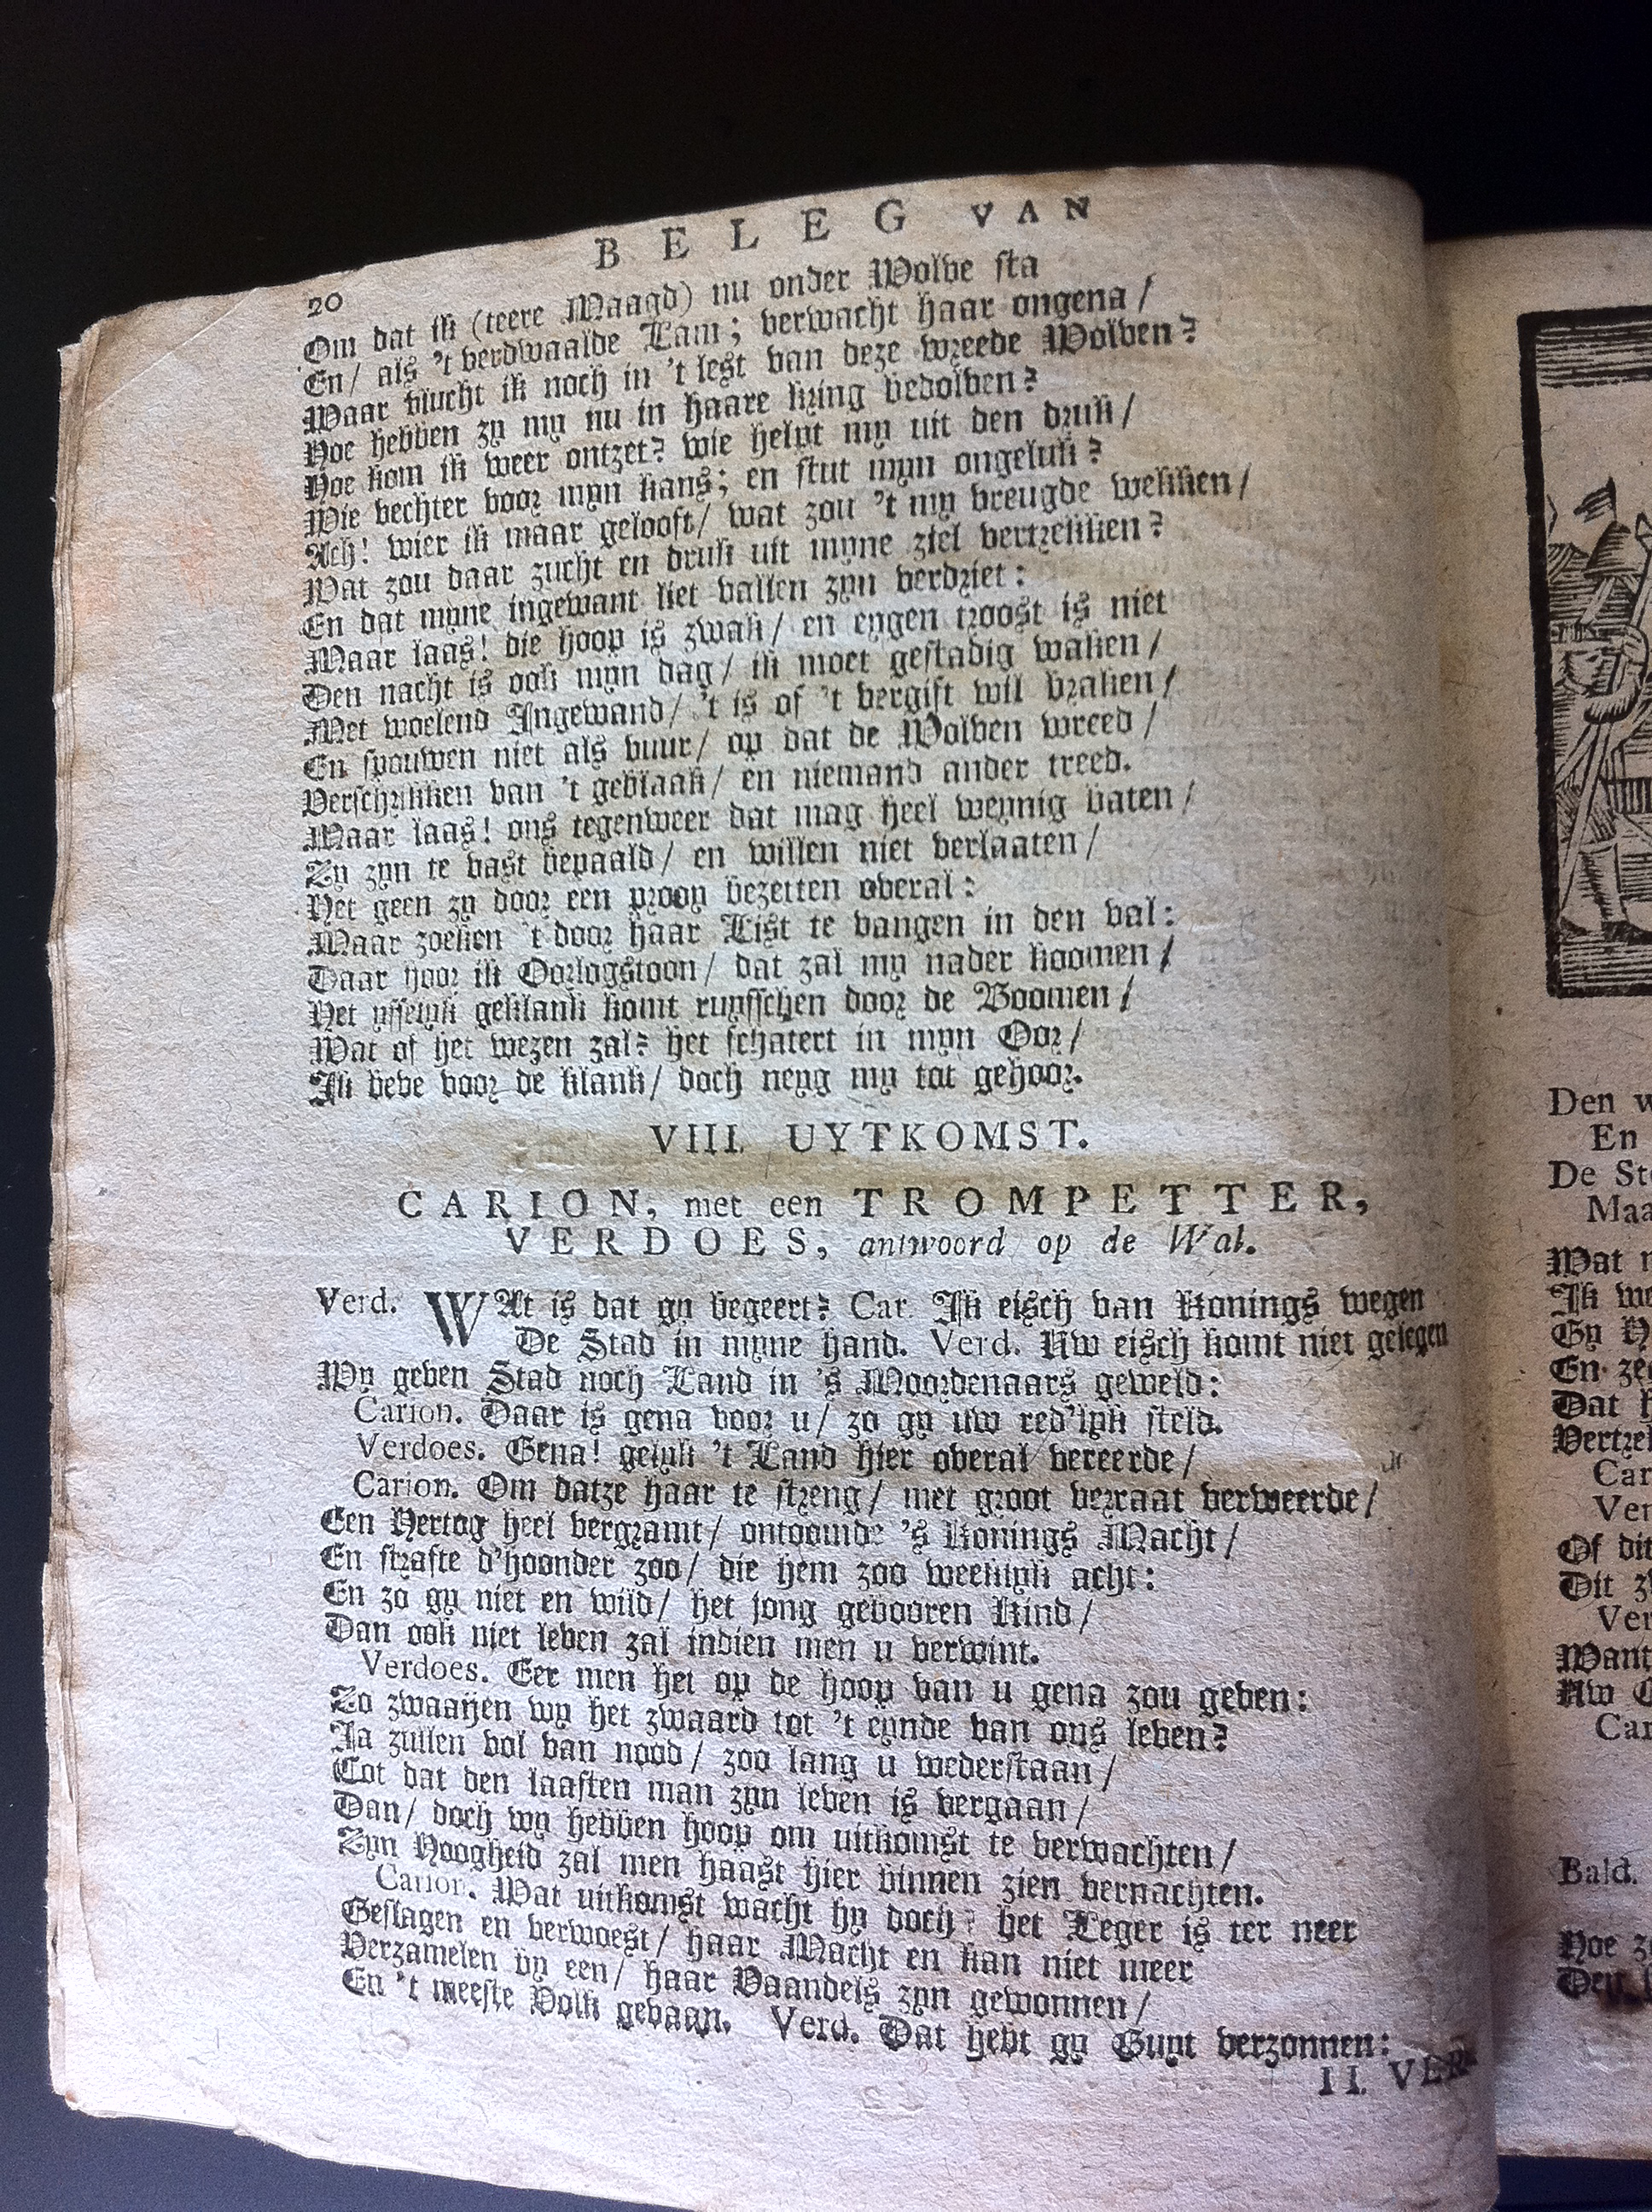 BELEG VAN
20
Om dat ik (teere Maagd) nu onder Wolve sta
En/ als 't verdwaalde Lam; verwacht haar ongena/
Waar vlucht ik noch in 't lest van deze wreede Wolven?
Hoe hebben zy my nu in haare kring bedolven?
Hoe kom ik weer ontzet? wie helpt my uit den druk/
Wie vechter voor myn kans; en stut myn ongeluk?
Ach! wier ik maar gelooft/ wat zou 't my vreugde wekken/
Wat zou daar zucht en druk uit myne ziel vertrekken?
En dat myne ingewant liet vallen zyn verdriet:
Maar laas! die hoop is zwak/ en eygen troost is niet
Den nacht is ook myn dag/ ik moet gestadig waken/
Met woelend Ingewand/ 't is of 't vergift wil braken/
En spouwen niet als vuur/ op dat de Wolven wreed/
Verschrikken van 't geblaak/ en niemand ander treed.
Maar laas! ons tegenweer dat mag heel weynig baten/
Zy zyn te vast bepaald/ en willen niet verlaaten/
Het geen zy door een prooy bezetten overal:
Maar zoeken 't door haar List te vangen in den val:
Daar hoor ik Oorlogstoon/ dat zal my nader koomen/
Het ysselyk geklank komt ruysschen door de Boomen/
Wat of het wezen zal? het schatert in myn Oor/
Ik beve voor de klank/ doch neyg my tot gehoor.
VIII. UYTKOMST.
CARION, met een TROMPETTER,
VERDOES, antwoord op de Wal.
Verd. WAt is dat gy begeert? Car. Ik eisch van Konings wegen
De Stad in myne hand. Verd. Uw eisch komt niet gelegen
Wy geven Stad noch Land in 's Moordenaars geweld:
Carion. Daar is gena voor u/ zo gy uw red'lyk steld.
Verdoes. Gena! gelyk 't Land hier overal vereerde/
Carion. Om datze haar te streng/ met groot verraat verweerde/
Een Hertog heel vergramt/ ontoomde 's Konings Macht/
En strafte d'hoonder zoo/ die hem zoo weeklyk acht:
En zo gy niet en wild/ het jong gebooren Kind/
Dan ook niet leven zal indien men u verwint.
Verdoes. Eer men het op de hoop van u gena zou geven:
Zo zwaaijen wy het zwaard tot 't eynde van ons leven?
Ja zullen vol van nood/ zoo lang u wederstaan/
Tot dat den laasten man zyn leven is vergaan/
Dan/ doch wy hebben hoop om uitkomst te verwachten/
Zyn Hoogheid zal men haast hier binnen zien vernachten.
Carion. Wat uitkomst wacht hy doch? het Leger is ter neer
Geslagen en verwoest/ haar Macht en kan niet meer
Verzamelen by een/ haar Vaandels zyn gewonnen/
En 't meeste Volk gevaan. Verd. Dat hebt gy Guyt verzonnen:
II. VER
Den
En
De
Wat
Ik
Gy
En
Dat
Car
Ver
Of dit
Dit
Ver
Want
Uw
Car
Bald.
Hoe
Den